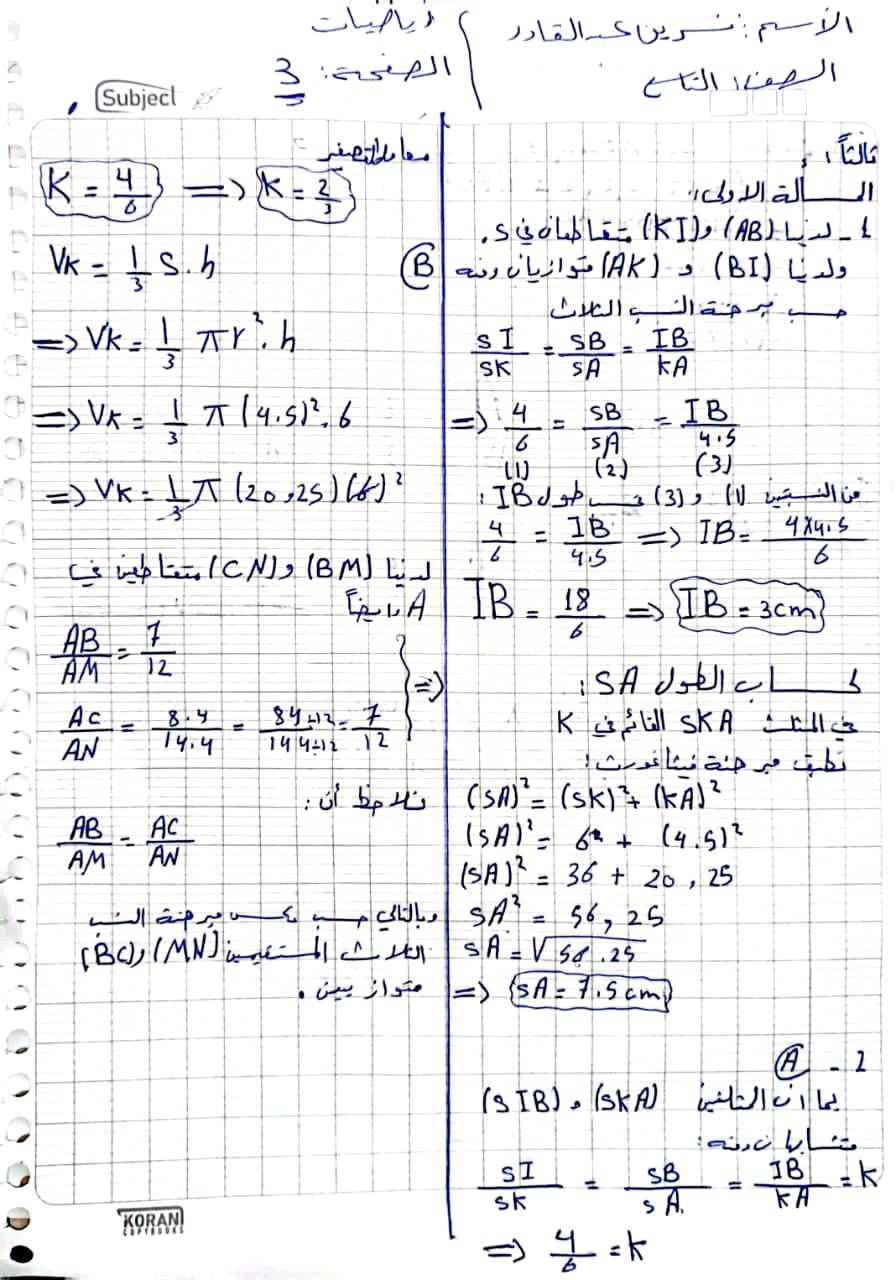 الأسم: نسرين عبد القادر
الصف: التاسع
رياضيات
الصفحة: 3
Subject
ثالثاً:
المسألة الاولى:
1- لدينا (AB) و (KI) متقاطعان في S.
ولدينا (BI) و (AK) متوازيان ومنه
حسب مبرهنة النسب الثلاث
SI/SK = SB/SA = IB/KA
=> 4/6 = SB/SA = IB/4.5
(1) (2) (3)
من النسبتين (1) و (3) نحسب طول IB:
4/6 = IB/4.5 => IB = 4×4.5/6
IB = 18/6 => IB = 3cm
حساب الطول SA:
في المثلث SKA القائم في K
نطبق مبرهنة فيثاغورث:
(SA)² = (SK)² + (KA)²
(SA)² = 6² + (4.5)²
(SA)² = 36 + 20,25
SA² = 56,25
SA = √56.25
=> SA = 7.5cm
2- A
بما ان المثلثين (SKA) و (SIB)
متشابهان ومنه:
SI/SK = SB/SA = IB/KA = K
=> 4/6 = K
معامل التصغير
K = 4/6 => K = 2/3
B
VK = 1/3 S.h
=> VK = 1/3 πr².h
=> VK = 1/3 π(4.5)².6
=> VK = 1/3 π(20,25)(6)²
لدينا (BM) و (CN) متقاطعين في
A وايضاً
AB/AM = 7/12
AC/AN = 8.4/14.4 = 84÷12/144÷12 = 7/12
=>
نلاحظ أن:
AB/AM = AC/AN
وبالتالي حسب عكس مبرهنة النسب
الثلاث المستقيمين (MN) و (BC)
متوازيين.
KORAN
COPYBOOKS